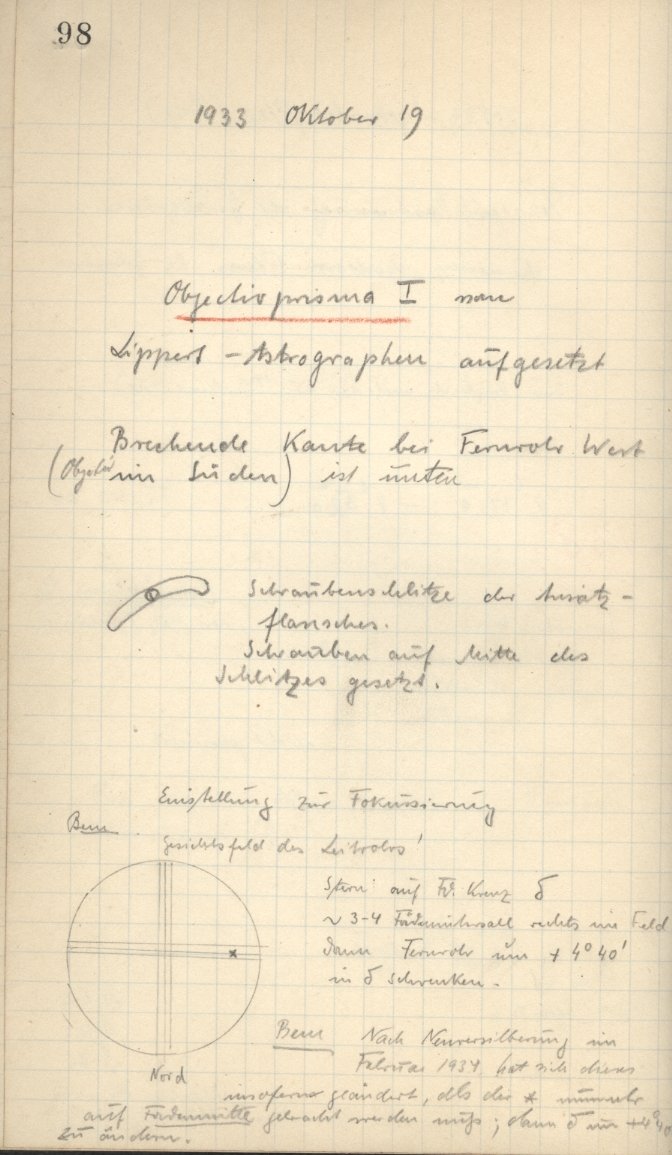 98
1933 Oktober 19
Objectivprisma I
Lippert-Astrographen aufgesetzt
Brechende Kante bei Fernrohr West
(Objectiv im Süden) ist unten
Schraubenschlitze der Ansatz-
flansches.
Schrauben auf Mitte des
Schlitzes gesetzt.
Einstellung zur Fokussierung
Bem
Gesichtsfeld des Leitrohrs
Stern auf Fd. Kreuz δ
~ 3-4 rechts im Feld
dann Fernrohr um + 4° 40'
in δ schwenken.
Nord
Bem Nach Neuversilberung im
Februar 1934 hat sich dieses
insofern geändert, als der * nunmehr
auf Fadenmitte gebracht werden muß; dann δ um
zu ändern.